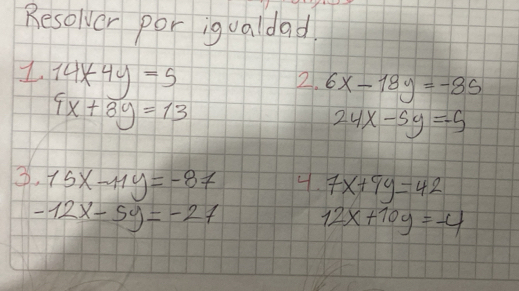 Resolver por igualdad.
1. 14x-4y = 5
9x+8y = 13
2. 6x-18y = -85
24x-5y = -5
3. 15x-11y = -87
-12x-5y = -27
4. 7x+9y = 42
12x+10y = -4